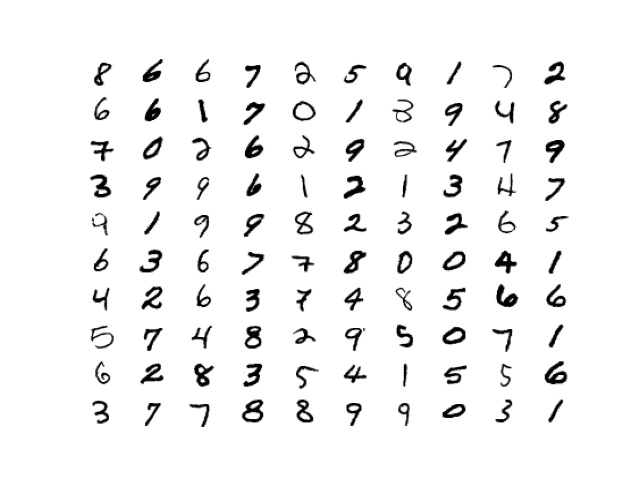 8 6 6 7 2 5 9 1 7 2
6 6 1 7 0 1 3 9 4 8
7 0 2 6 2 9 2 4 7 9
3 9 9 6 1 2 1 3 4 7
9 1 9 9 8 2 3 2 6 5
6 3 6 7 7 8 0 0 4 1
4 2 6 3 7 4 8 5 6 6
5 7 4 8 2 9 5 0 7 1
6 2 8 3 5 4 1 5 5 6
3 7 7 8 8 9 9 0 3 1